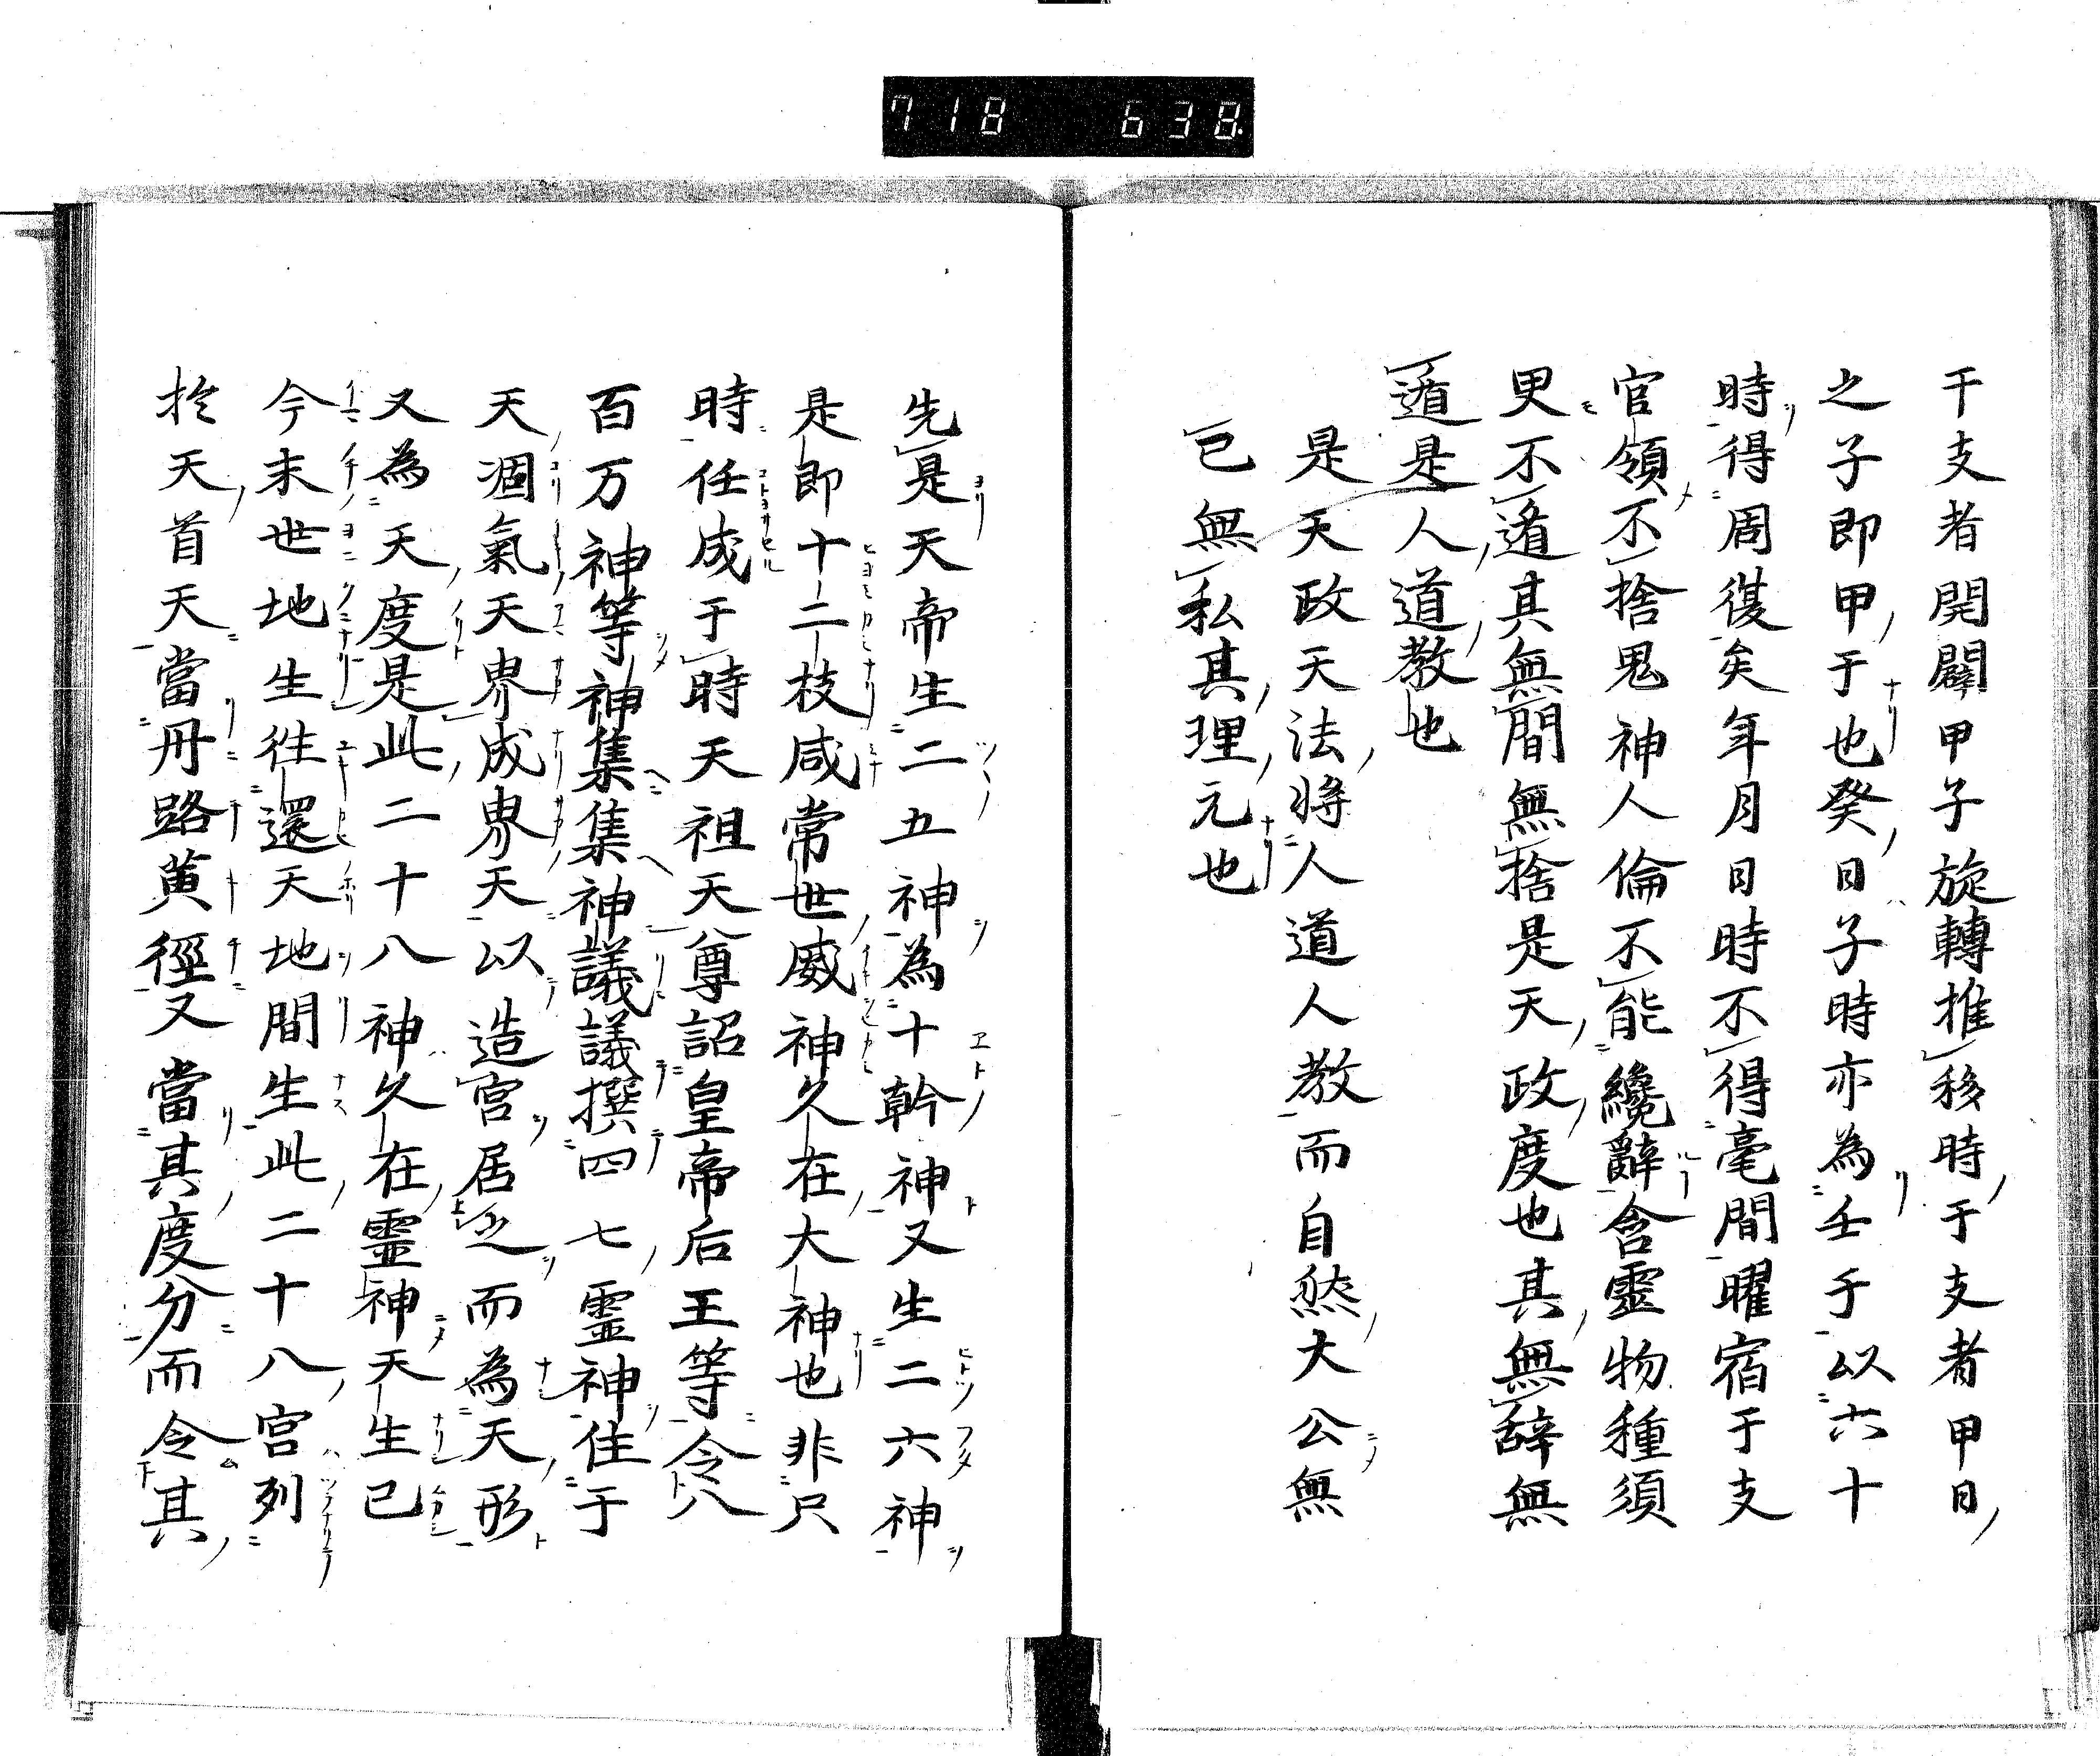 718 638
干支者開闢甲子旋轉推移時于支者甲日
之子即甲于也癸日子時亦為壬于以六十
時得周復矣年月日時不得毫間曜宿于支
官領不捨鬼神人倫不能纔辭含靈物種須
更不遁其無間無捨是天政度也其無辞無
遁是人道教也
是天政天法將人道人教而自然大公無
已無私其理元也
先是天帝生二五神為十幹神又生二六神
是即十二枝咸常世威神久在大神也非尺
時任成于時天祖天尊詔皇帝后王等令八
百万神等神集集神議議撰四七霊神住于
天凅氣天界成界天以造宮居之而為天形
又為天度是此二十八神久在霊神天生已
今末世地生往還天地間生此二十八宮列
於天首天當丹路黄徑又當其度分而令其